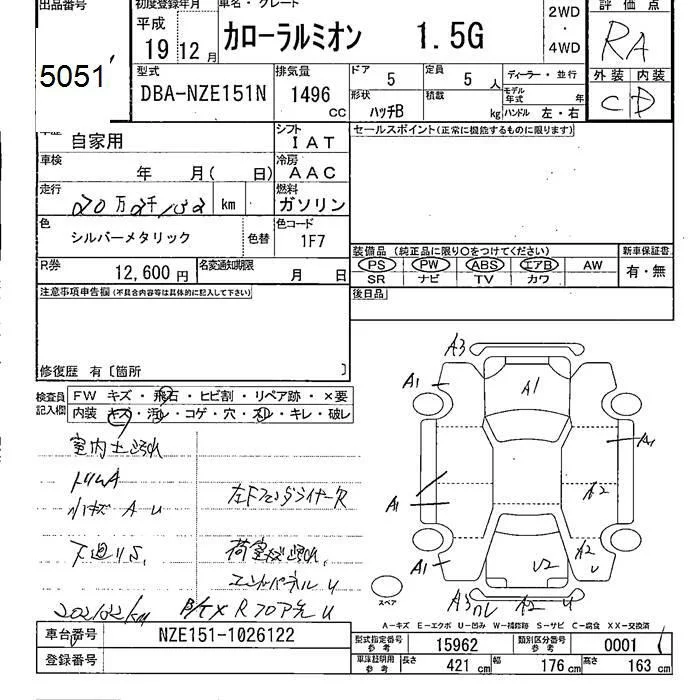 出品番号 初度登録年月 車名・グレード 評価点
平成 2WD
5051 19 12月 カローラルミオン 1.5G ・ RA
4WD
外装 内装
C D
型式 排気量 ドア 定員 ディーラー・並行
DBA-NZE151N 1496 CC 5 5 人 モデル年式 年
形状 ハッチB 積載 kg ハンドル 左・右
車歴 自家用 シフト IAT セールスポイント(正常に機能するものに限ります)
車検 年 月( 日) 冷房 AAC
走行 20万2千132 km 燃料 ガソリン
色 シルバーメタリック 色替 色コード 1F7
装備品 (純正品に限り○をつけてください) 新車保証書
PS PW ABS エアB AW 有・無
SR ナビ TV カワ
R券 12,600円 名変通知期限 月 日
注意事項申告欄(不具合内容等は具体的に記入して下さい) 後日品
修復歴 有〔箇所 〕
検査員記入欄 FW キズ・飛石・ヒビ割・リペア跡・×要
内装 キズ・汚レ・コゲ・穴・スレ・キレ・破レ
A3
A1 A1
A1
A1 A2
A1 A2 U
U2
A3 A2 U
室内土汚れ
トリムA
小キズ A U 左Fフェンダライナー欠
下廻りS. 荷室キズ汚れ.
エンドパネルU
202132km Rフロア先U
スペア
A-キズ E-エクボ U-凹み W-補修跡 S-サビ C-腐食 XX-交換済
車台番号 NZE151-1026122
登録番号
型式指定番号 参考 15962 類別区分番号 参考 0001
車庫証明用 参考 長さ 421 cm 幅 176 cm 高さ 163 cm